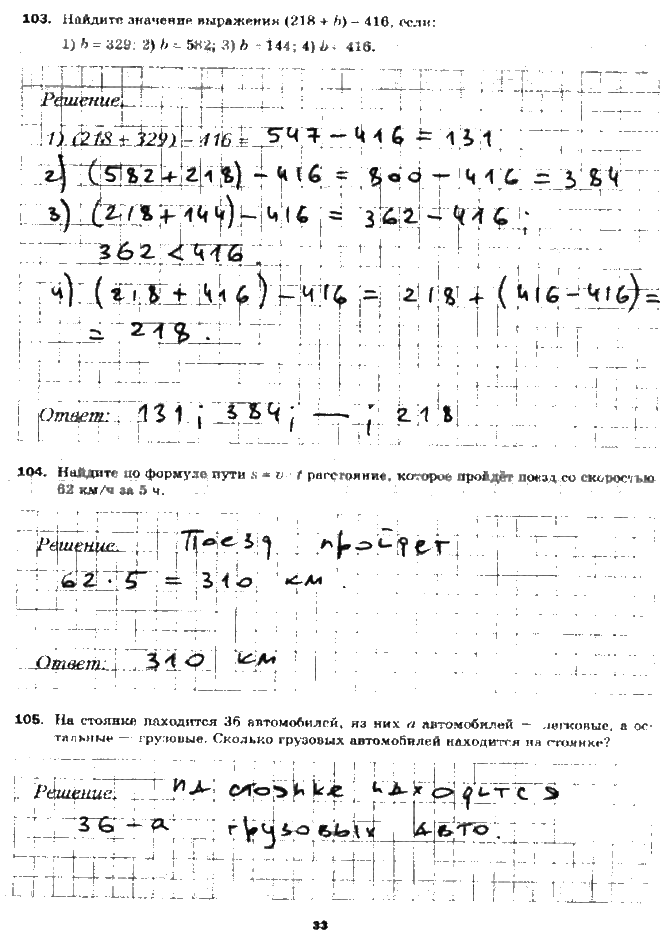 103. Найдите значение выражения (218 + b) – 416, если:
1) b = 329; 2) b = 582; 3) b = 144; 4) b = 416.
Решение.
1) (218 + 329) – 416 = 547 – 416 = 131
2) (582 + 218) – 416 = 800 – 416 = 384
3) (218 + 144) – 416 = 362 – 416;
362 < 416.
4) (218 + 416) – 416 = 218 + (416 – 416) =
= 218.
Ответ: 131; 384; — ; 218
104. Найдите по формуле пути s = v · t расстояние, которое пройдёт поезд со скоростью
62 км/ч за 5 ч.
Решение. Поезд пройдет
62 · 5 = 310 км.
Ответ: 310 км
105. На стоянке находится 36 автомобилей, из них a автомобилей — легковые, а ос-
тальные — грузовые. Сколько грузовых автомобилей находится на стоянке?
Решение. На стоянке находится
36 – a грузовых авто.
33